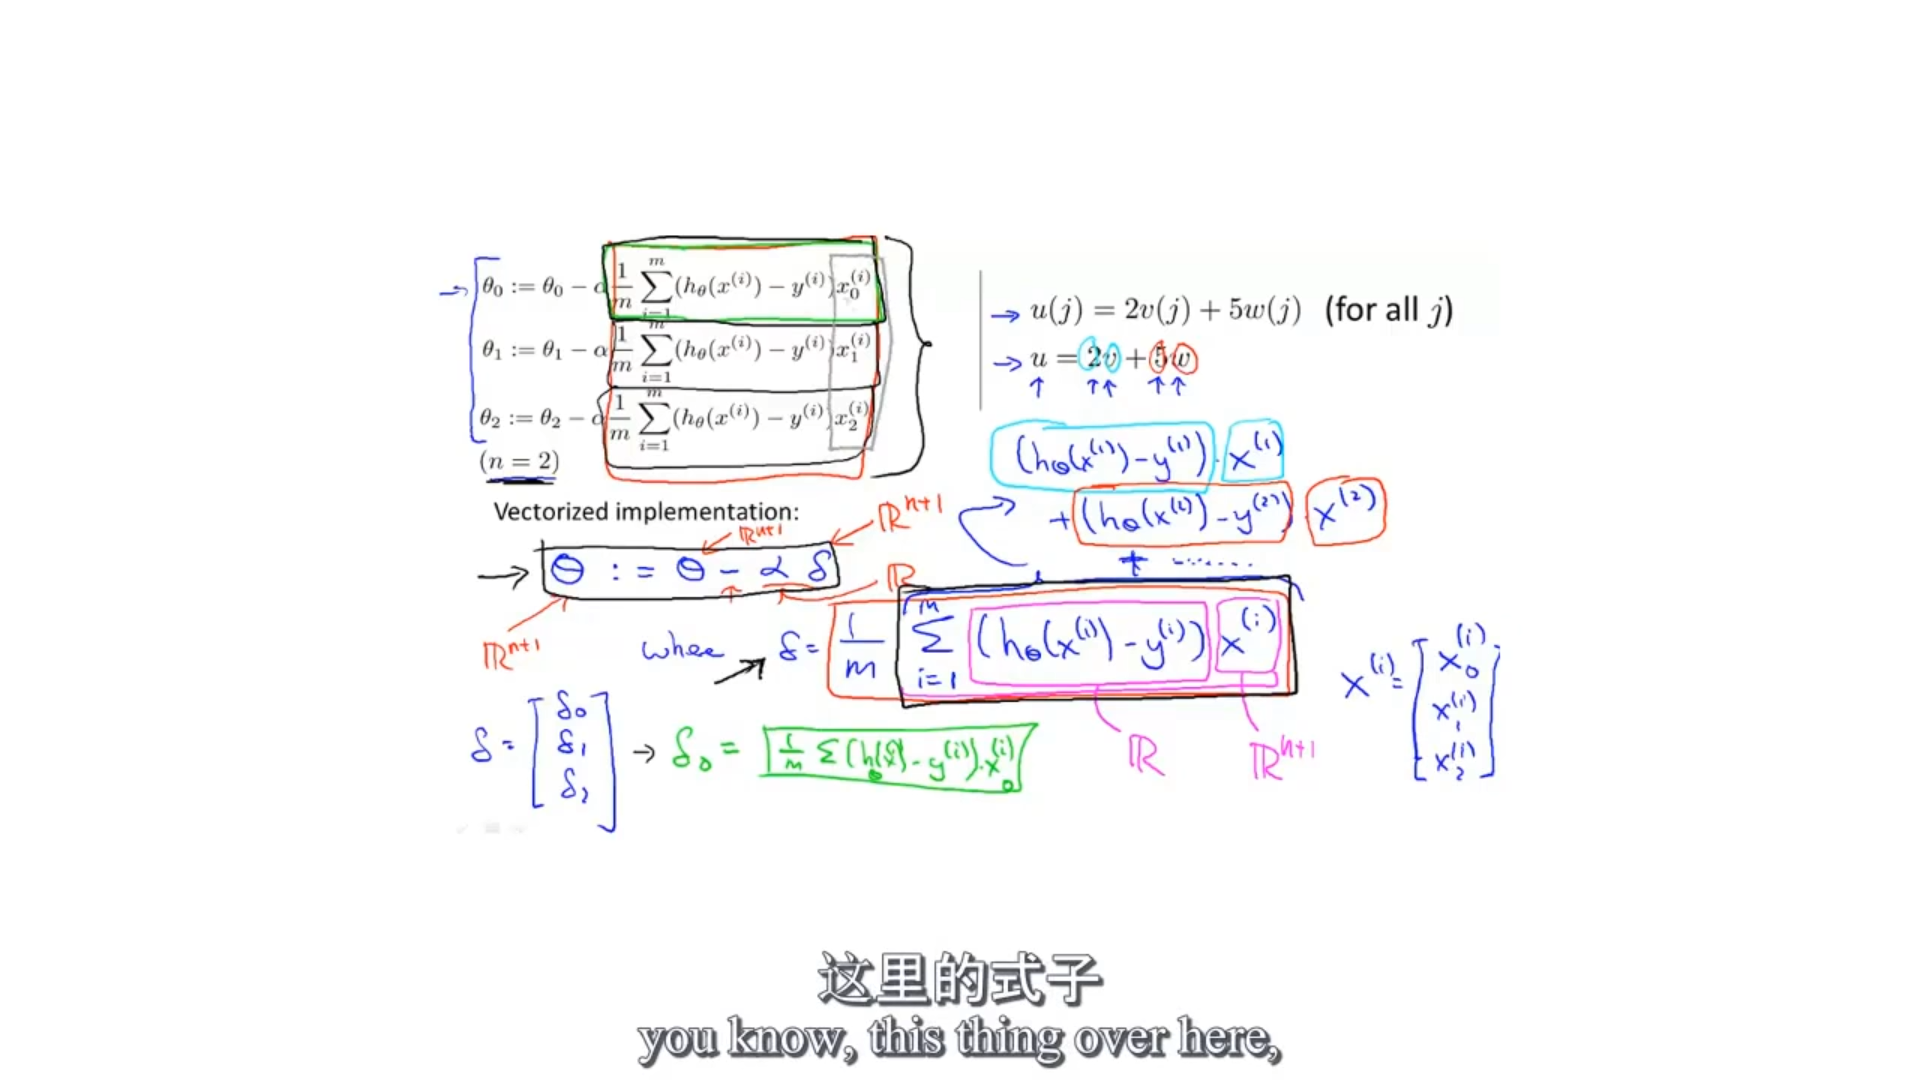 θ₀ := θ₀ − α 1/m ∑_{i=1}^{m} (h_θ(x^{(i)}) − y^{(i)}) x₀^{(i)}
θ₁ := θ₁ − α 1/m ∑_{i=1}^{m} (h_θ(x^{(i)}) − y^{(i)}) x₁^{(i)}
θ₂ := θ₂ − α 1/m ∑_{i=1}^{m} (h_θ(x^{(i)}) − y^{(i)}) x₂^{(i)}
(n = 2)
→ u(j) = 2v(j) + 5w(j) (for all j)
→ u = 2v + 5w
↑ ↑ ↑ ↑ ↑
(h_θ(x^{(1)}) − y^{(1)}) · x^{(1)}
+ (h_θ(x^{(2)}) − y^{(2)}) x^{(2)}
+ ......
Vectorized implementation:
ℝ^{n+1} ℝ^{n+1}
→ θ := θ − α δ
ℝ
ℝ^{n+1}
where → δ = 1/m ∑_{i=1}^{m} (h_θ(x^{(i)}) − y^{(i)}) x^{(i)}
ℝ ℝ^{n+1}
x^{(i)} = [x₀^{(i)}
x₁^{(i)}
x₂^{(i)}]
δ = [δ₀
δ₁
δ₂]
→ δ₀ = 1/m ∑ (h_θ(x^{(i)}) − y^{(i)}) · x₀^{(i)}
这里的式子
you know, this thing over here,